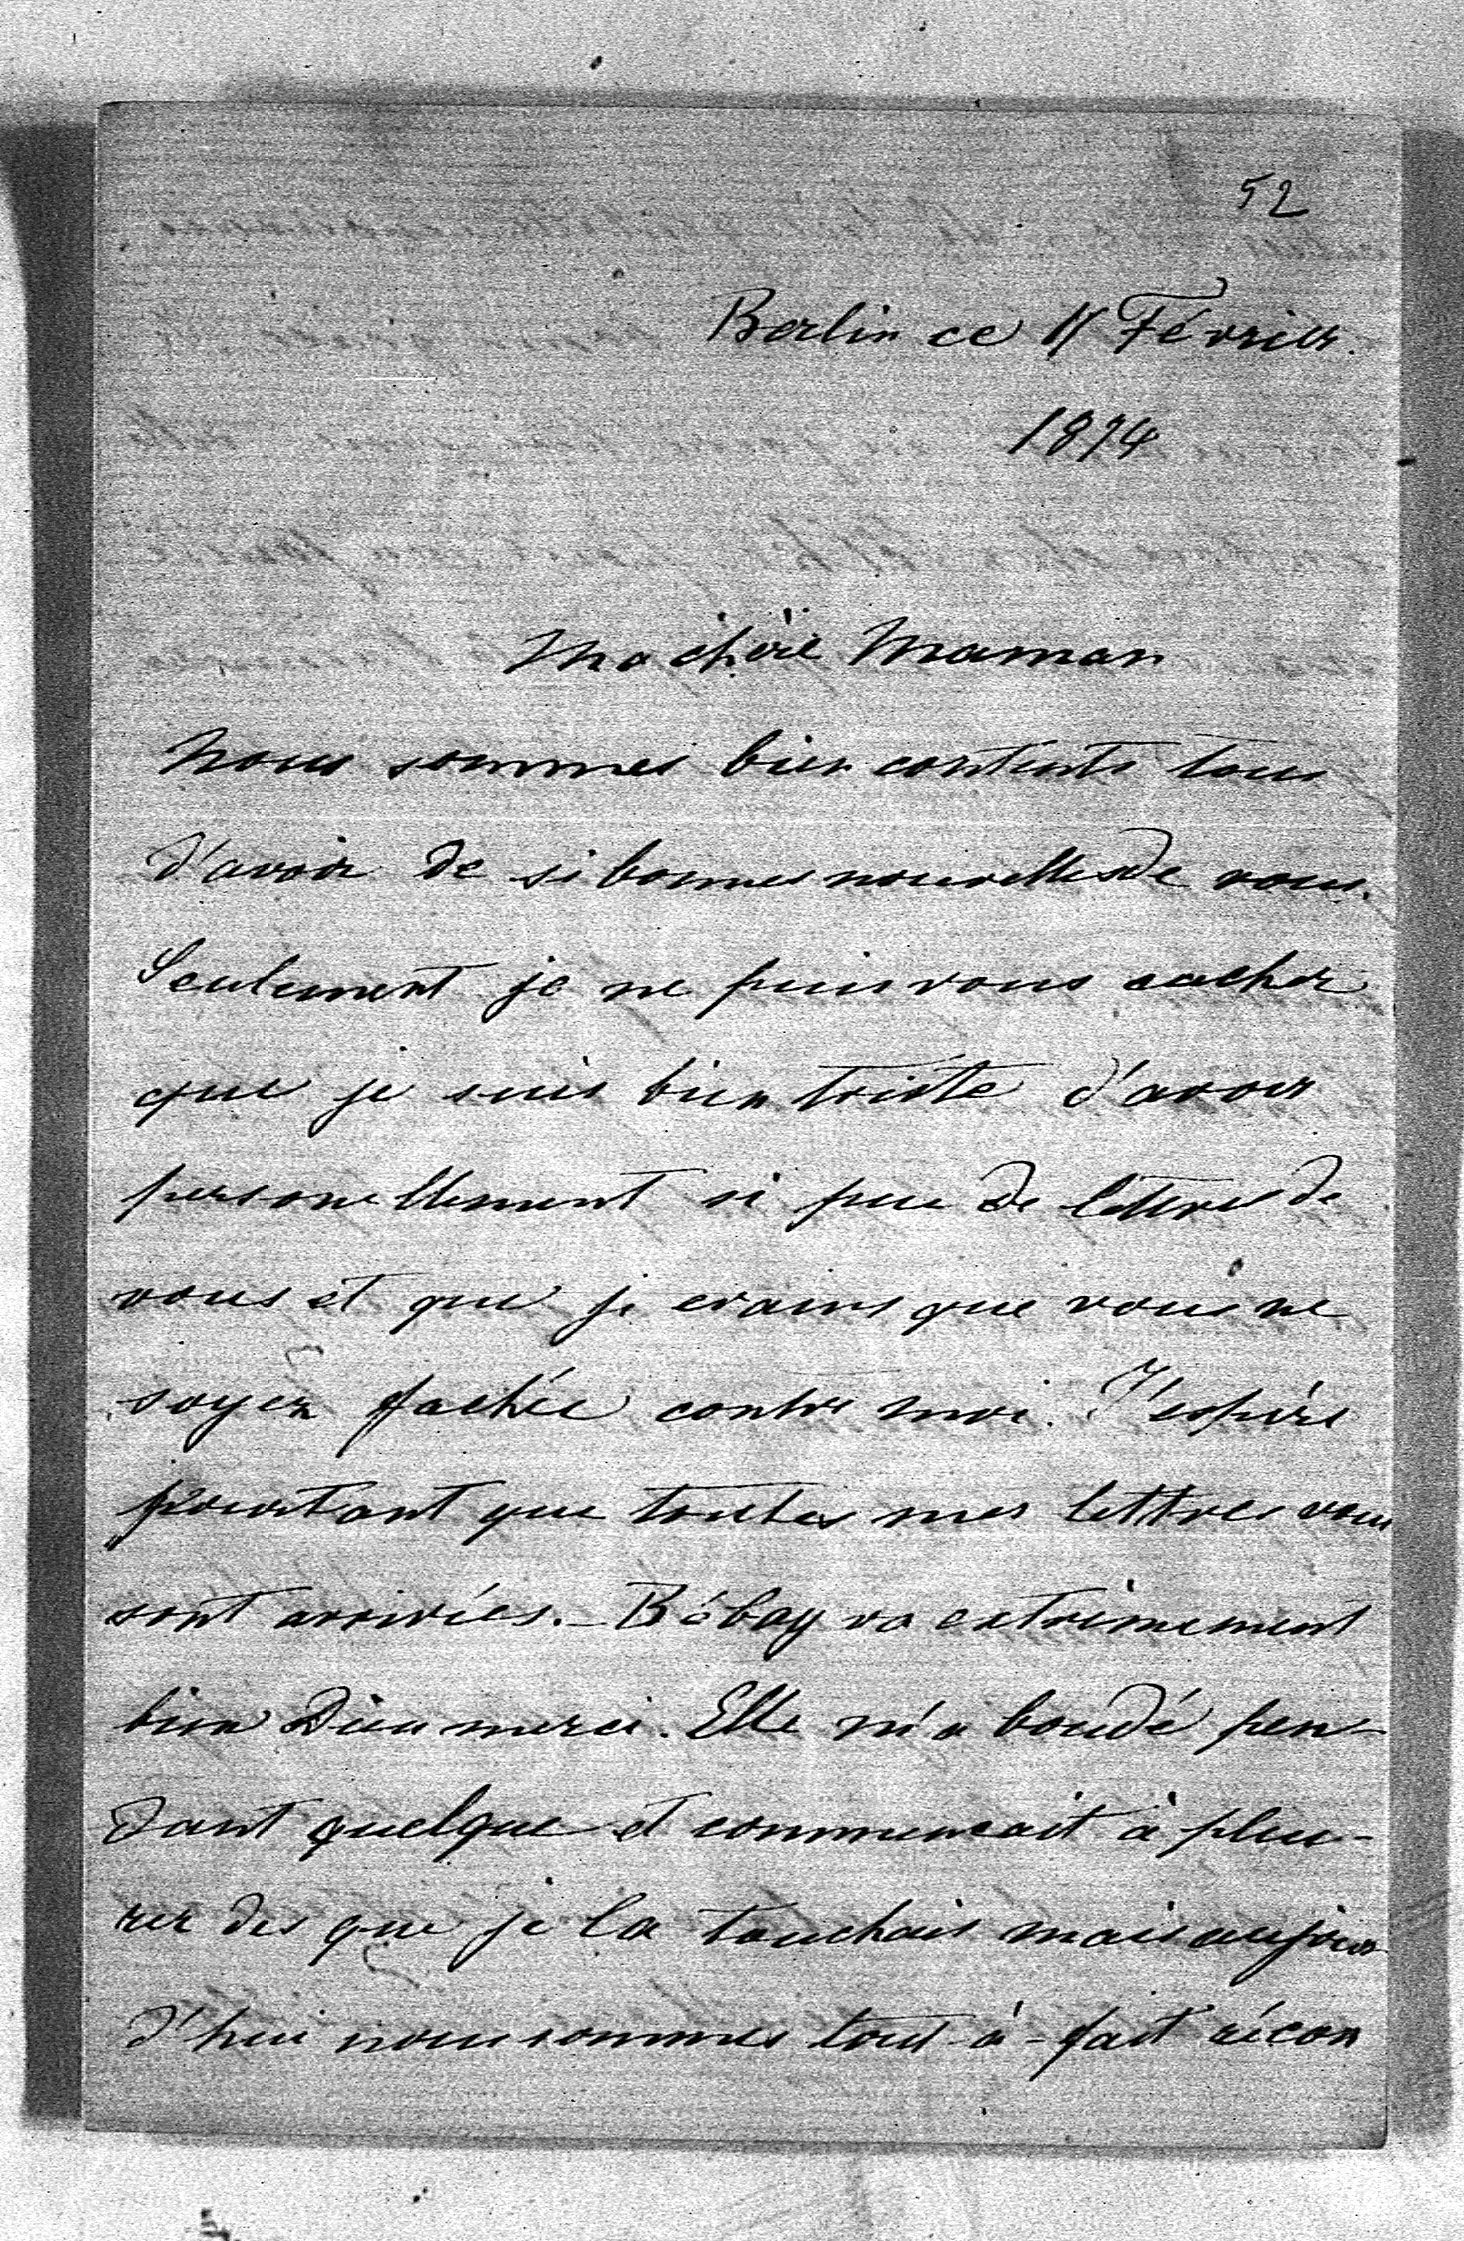 52
Berlin ce 11 Février.
1874
Ma chère Maman
Nous sommes bien contents tous
d'avoir de si bonnes nouvelles de vous.
Seulement je ne puis vous cacher
que je suis bien triste d'avoir
personellement si peu de lettres de
vous et que je crains que vous ne
soyez fachée contre moi. J'espère
pourtant que toutes mes lettres vous
sont arrivées. – Bébay va extrèmement
bien Dieu merci. Elle m'a boudé pen-
dant quelque et commencait à pleu-
rer des que je la touchais mais aujour
d'hui nous sommes tout-à-fait récon